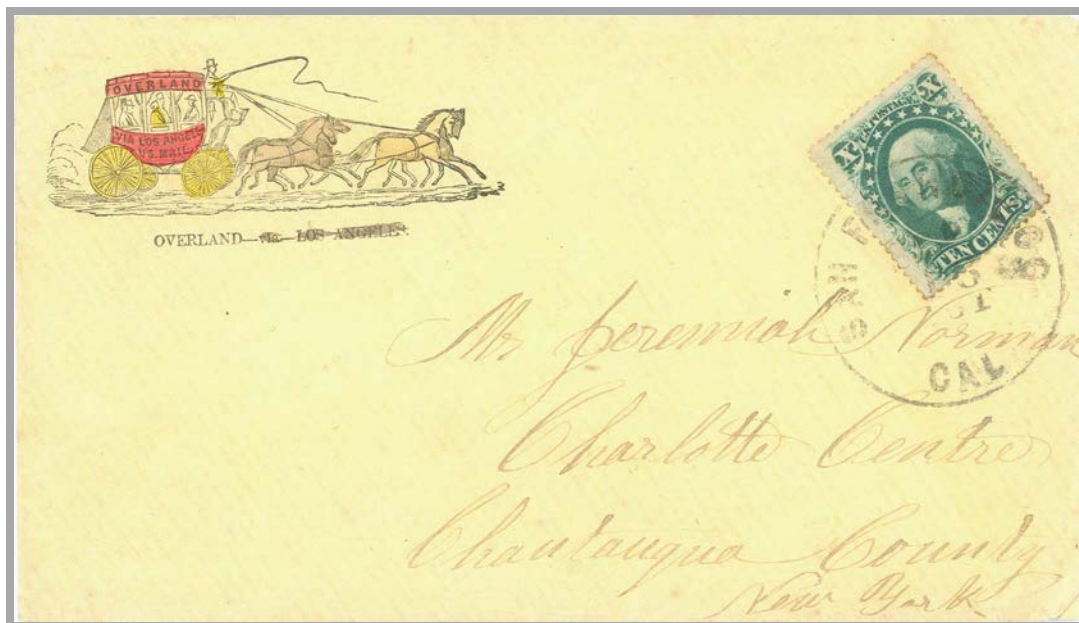 OVERLAND
VIA LOS ANGELES
U.S. MAIL
OVERLAND—via—LOS ANGELES.
X X
U.S. POSTAGE
TEN CENTS
SAN F CO
CAL
Mr Jeremiah Norman
Charlotte Centre
Chautauqua County
New York